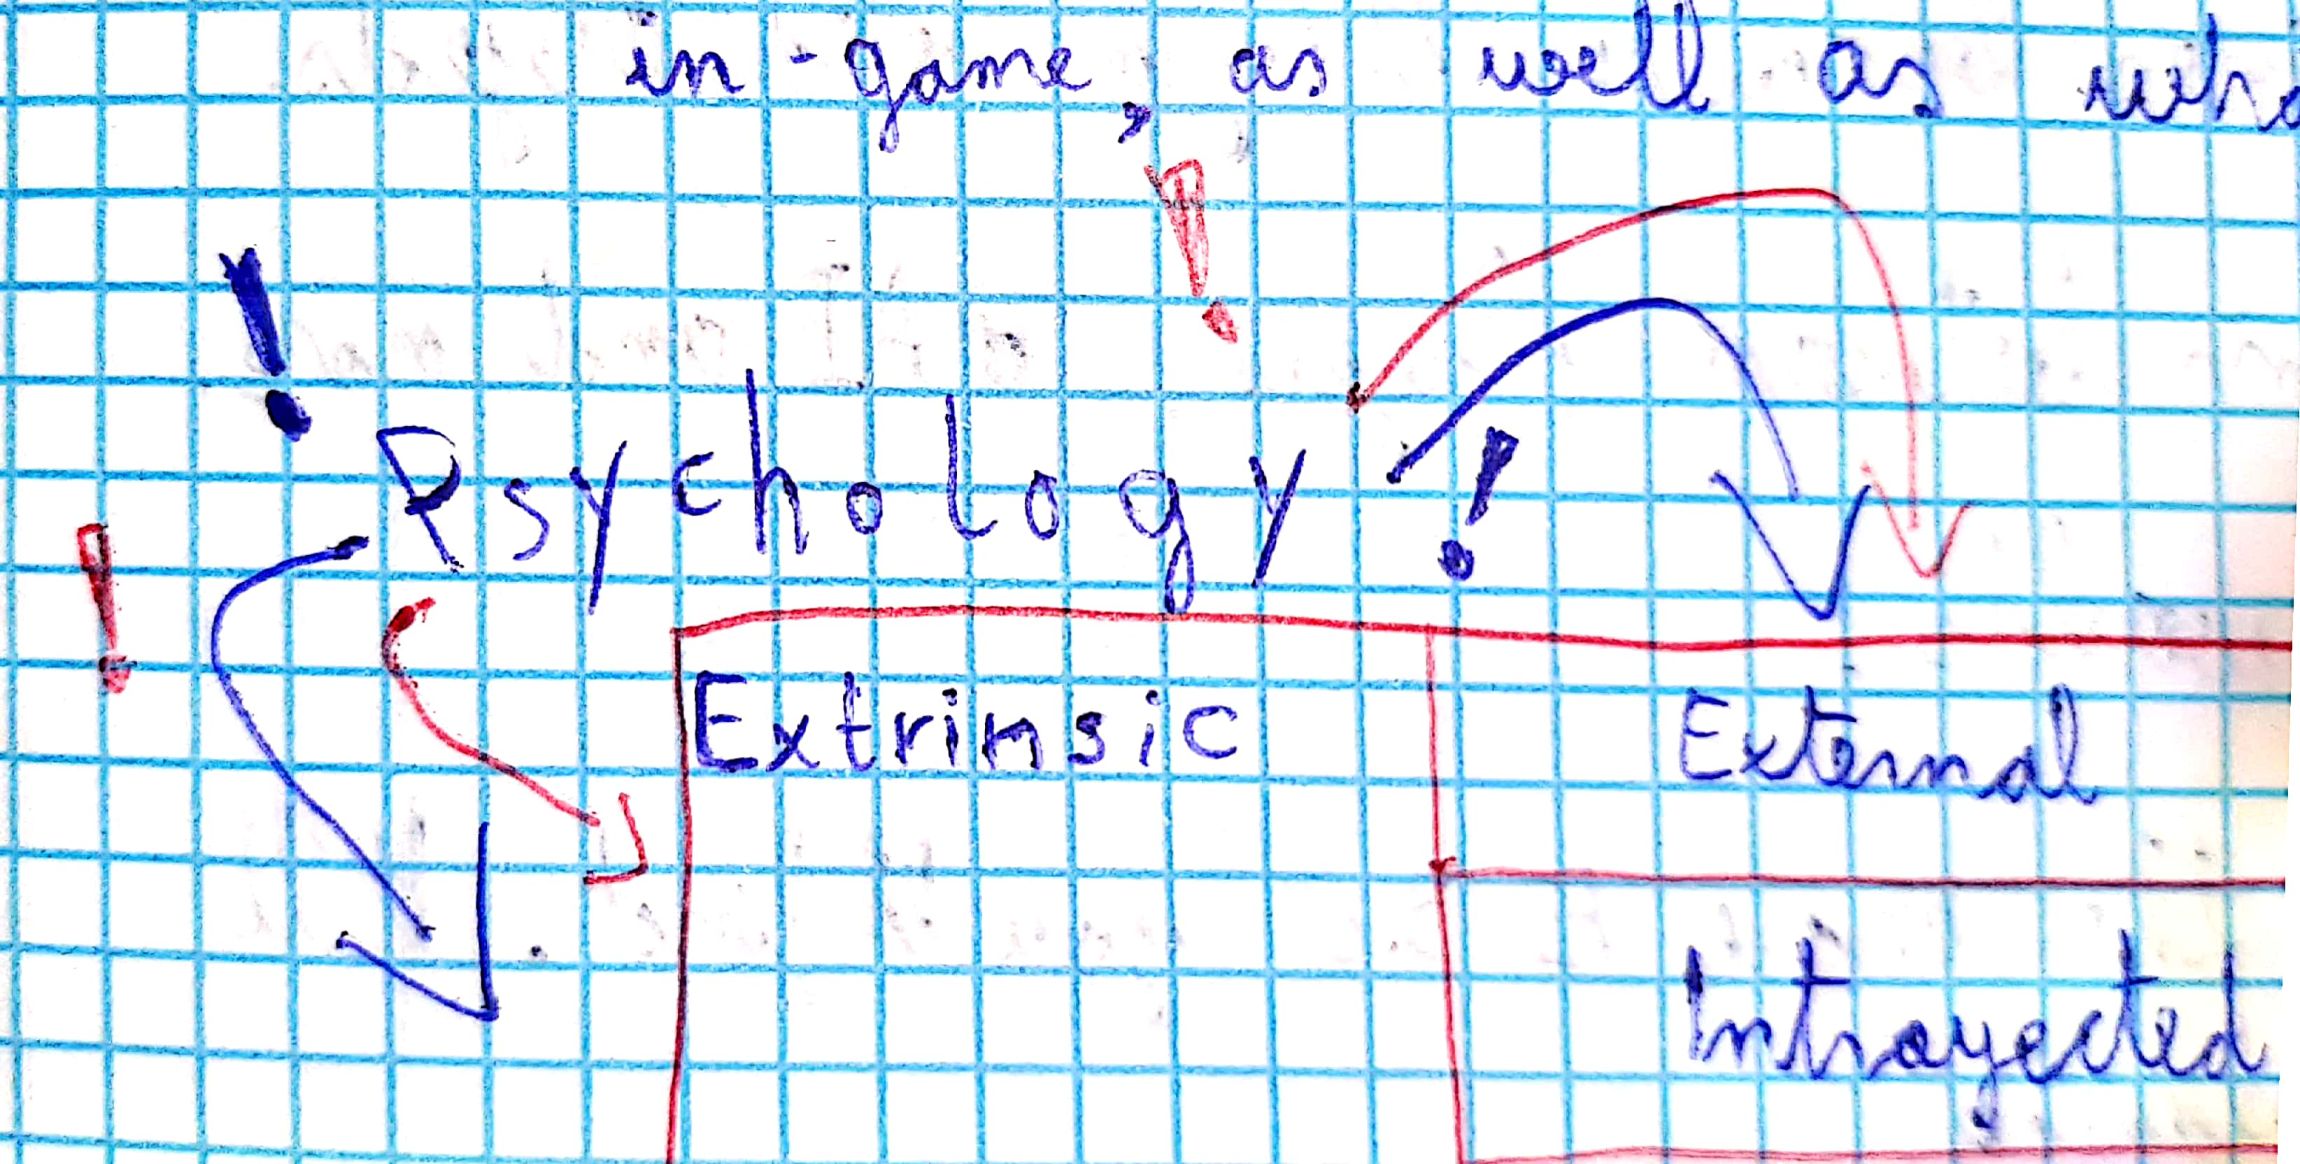 in-game, as well as
! Psychology ! !
!
Extrinsic External
Introyected